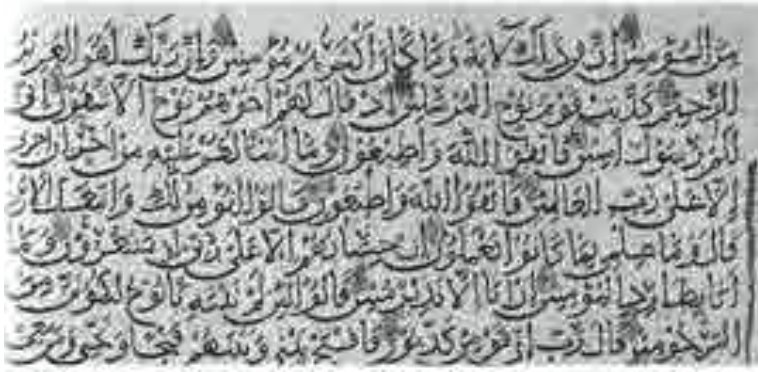 من المؤمنين ان في ذلك لاية وما كان اكثرهم مؤمنين وان ربك لهو العزيز
الرحيم كذبت قوم نوح المرسلين اذ قال لهم اخوهم نوح الا تتقون اني
لكم رسول امين فاتقوا الله واطيعون وما اسئلكم عليه من اجر ان اجري
الا على رب العالمين فاتقوا الله واطيعون قالوا انؤمن لك واتبعك
قال وما علمي بما كانوا يعملون ان حسابهم الا على ربي لو تشعرون وما
انا بطارد المؤمنين ان انا الا نذير مبين قالوا لئن لم تنته يا نوح لتكونن من
المرجومين قال رب ان قومي كذبون فافتح بيني وبينهم فتحا ونجني ومن معي